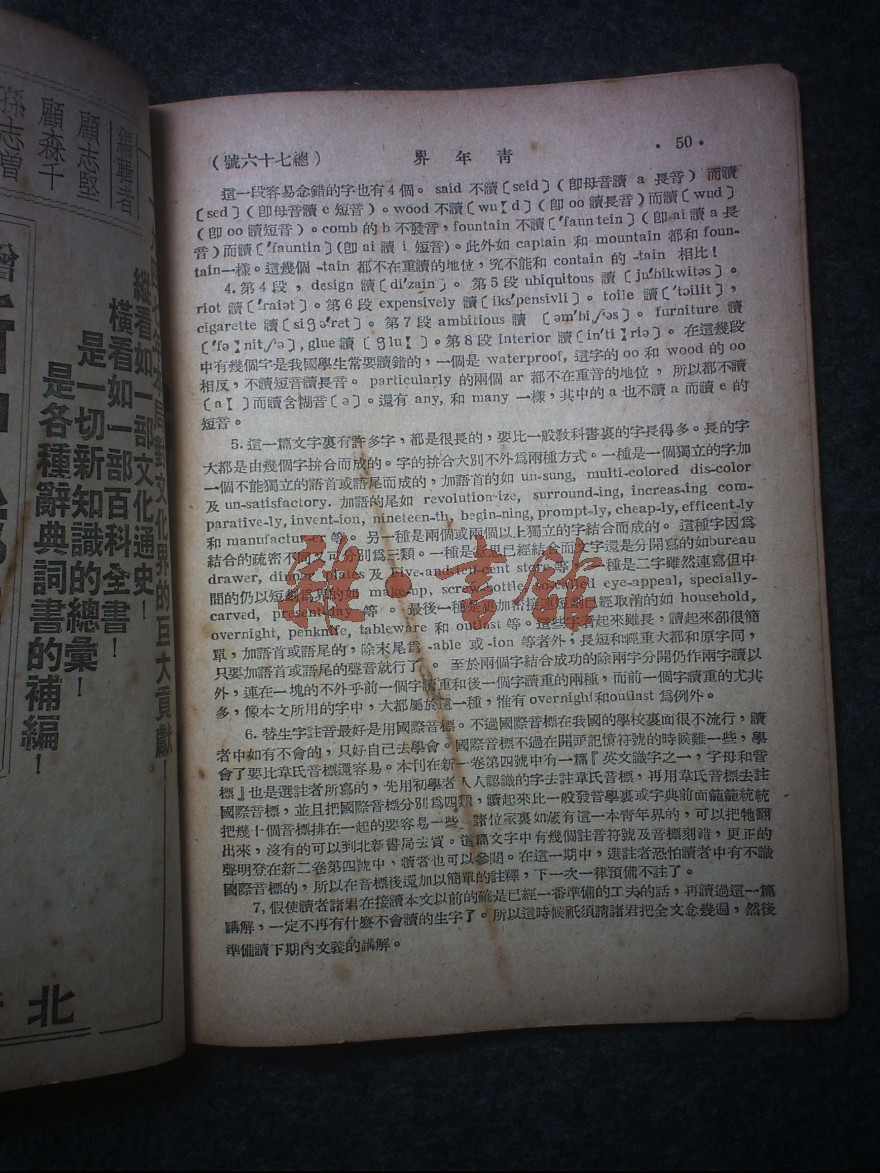 （總七十六號）　青年界　·50·
這一段容易念錯的字也有4個。said 不讀〔seid〕(卽母音讀 a 長音) 而讀
〔sed〕(卽母音讀 e 短音)。wood 不讀〔wu:d〕(卽 oo 讀長音)而讀〔wud〕
(卽 oo 讀短音)。comb 的 b 不發音，fountain 不讀〔'faun tein〕(卽 ai 讀 a 長
音) 而讀〔'fauntin〕(卽 ai 讀 i 短音)。此外如 captain 和 mountain 都和 foun-
tain一樣。這幾個 -tain 都不在重讀的地位，究不能和 contain 的 -tain 相比！
4. 第4段，design 讀〔di'zain〕。第5段 ubiquitous 讀〔ju'bikwitəs〕。
riot 讀〔'raiət〕。第6段 expensively 讀〔iks'pensivli〕. toile 讀〔'tɔilit〕,
cigarette 讀〔sigə'ret〕。第7段 ambitious 讀〔əm'biʃəs〕。furniture 讀
〔'fə:nitʃə〕, glue 讀〔glu:〕。第8段 Interior 讀〔in'ti:riə〕。在這幾段
中有幾個字是我國學生常要讀錯的，一個是 waterproof, 這字的 oo 和 wood 的 oo
相反，不讀短音讀長音。particularly 的兩個 ar 都不在重音的地位，所以都不讀
〔a:〕而讀含糊音〔ə〕。還有 any, 和 many 一樣，其中的 a 也不讀 a 而讀 e 的
短音。
5. 這一篇文字裏有許多字，都是很長的，要比一般敎科書裏的字長得多。長的字
大都是由幾個字拚合而成的。字的拚合大別不外爲兩種方式。一種是一個獨立的字加
一個不能獨立的語首或語尾而成的，加語首的如 un-sung, multi-colored dis-color
及 un-satisfactory. 加語的尾如 revolution-ize, surround-ing, increas-ing com-
parative-ly, invent-ion, nineteen-th, begin-ning, prompt-ly, cheap-ly, efficent-ly
和 manufactur 等。另一種是兩個或兩個以上獨立的字結合而成的。這種字因爲
結合的疏密不同，可分別爲三類。一種是意思已經結合而文字還是分開寫的如bureau
drawer, dinner plates 及 Five-and-ten-cent store 等。一種是二字雖然連寫但中
間的仍以短劃爲界的如 make-up, screw-bottle, so-called eye-appeal, specially-
carved, present-day 等。最後一種是更加密接連短劃已經取消的如 household,
overnight, penknife, tableware 和 outlast 等。這些字看起來雖長，讀起來卻很簡
單，加語首或語尾的，除末尾爲 -able 或 -ion 等者外，長短和輕重大都和原字同，
只要加語首或語尾的聲音就行了。至於兩個字結合成功的除兩字分開仍作兩字讀以
外，連在一塊的不外乎前一個字讀重和後一個字讀重的兩種，而前一個字讀重的尤其
多，像本文所用的字中，大都屬於這一種，惟有overnight和outlast 爲例外。
6. 替生字註音最好是用國際音標。不過國際音標在我國的學校裏面很不流行，讀
者中如有不會的，只好自己去學會。國際音標不過在開頭記憶符號的時候難一些，學
會了要比韋氏音標還容易。本刊在新一卷第四號中有一篇『英文識字之一，字母和音
標』也是選註者所寫的，先用初學者人人認識的字去註韋氏音標，再用韋氏音標去註
國際音標，並且把國際音標分別爲四類，讀起來比一般發音學裏或字典前面籠籠統統
把幾十個音標排在一起的要容易一些。諸位家裏如藏有這一本靑年界的，可以把牠翻
出來，沒有的可以到北新書局去買。這篇文字中有幾個註音符號及音標刻錯，更正的
聲明登在新二卷第四號中，讀者也可以參閱。在這一期中，選註者恐怕讀者中有不識
國際音標的，所以在音標後還加以簡單的註釋，下一次一律預備不註了。
7, 假使讀者諸君在接讀本文以前的確是已經一番準備的工夫的話，再讀過這一篇
講解，一定不再有什麼不會讀的生字了。所以這時候祇須請諸君把全文念幾遍，然後
準備讀下期內文義的講解。
局對文化界的巨大貢獻！
縱看如一部文化通史！
橫看如一部百科全書！
是一切新知識的總彙！
是各種辭典詞書的補編！
編輯者
顧志堅
顧森千
孫志曾
北